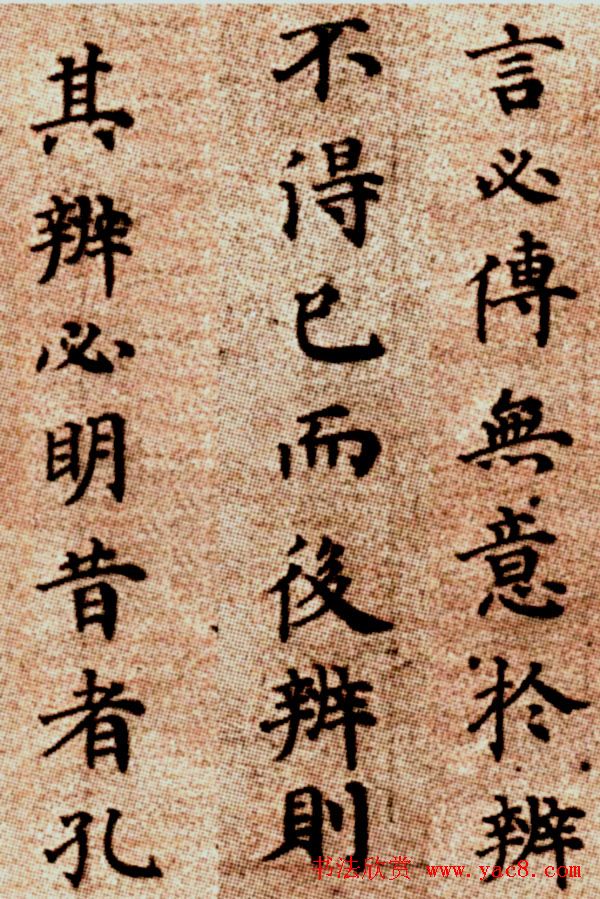 言必傳無意於辨
不得已而後辨則
其辨必明昔者孔
书法欣赏 www.yac8.com